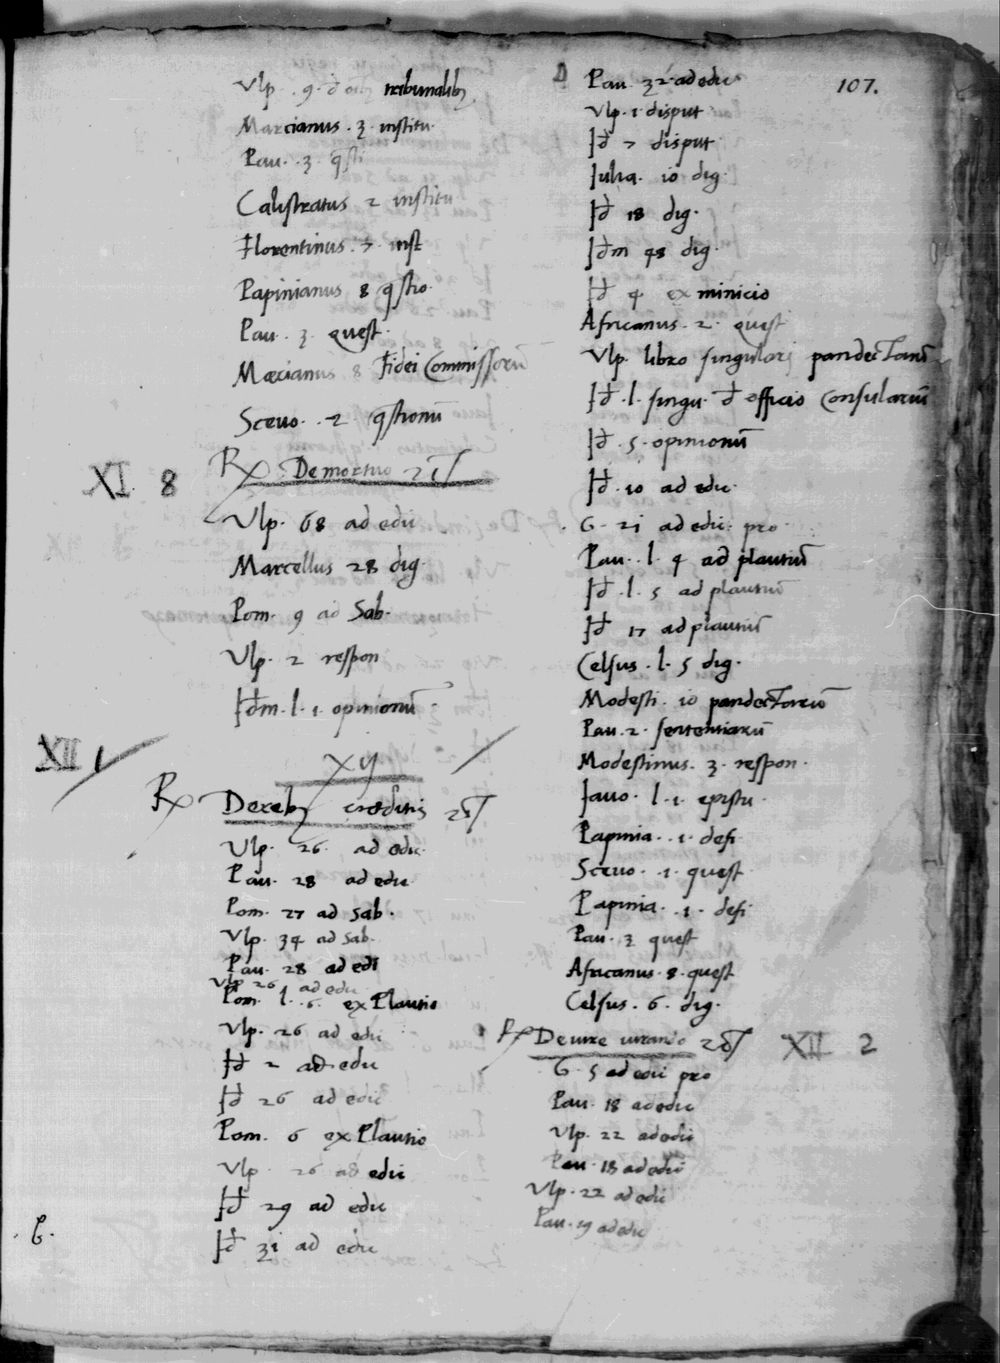 107.
Vlp. 9. d oīb tribunalib
Marcianus. 3. institu.
Pau. 3. qsti
Calistratus 2 institu
Florentinus. 7. inst
Papinianus 8 qstio.
Pau. 3. quest.
Mæcianus 8 Fidei Commissorū
Sceuo. 2. qstionū
XI. 8 Rx De mortuo
Vlp. 68 ad edic
Marcellus 28 dig.
Pom. 9 ad Sab.
Vlp. 2 respon
Idm. l. 1. opinionū
XII 1
xij
Rx De reb creditis
Vlp. 26. ad edic.
Pau. 28 ad edic.
Pom. 27 ad sab.
Vlp. 34 ad sab.
Pau. 28 ad edi
Vlp 26 ad edic
Pom. l. 6. ex Plautio
Vlp. 26 ad edic
Id 2 ad edic
Id 26 ad edic
Pom. 6 ex Plautio
Vlp 26 ad edic
Id 29 ad edic
Id 31 ad edic
6.
Pau. 32. ad edic
Vlp. 1. disput
Id 7 disput
Iulia. 10 dig.
Id 18 dig.
Idm 48 dig.
Id 4 ex minicio
Africanus. 2. quest
Vlp. libro singulari pandectarū
Id. l. singu. d officio Consulariū
Id. 5. opinionū
Id. 10 ad edic.
G. 21 ad edic. pro.
Pau. l. 4 ad plautiū
Id. l. 5 ad plautiū
Id 17 ad plautiū
Celsus. l. 5 dig.
Modesti. 10 pandectarū
Pau. 2. sententiarū
Modestinus. 3. respon.
Iauo. l. 1. epistu.
Papinia. 1. defi.
Sceuo. 1. quest
Papinia. 1. defi
Pau. 3 quest
Africanus. 8. quest
Celsus. 6. dig.
Rx De iure iurando XII 2
G. 5 ad edic pro
Pau. 18 ad edic
Vlp. 22 ad edic
Pau. 18 ad edic
Vlp. 22 ad edic
Pau. 19 ad edic